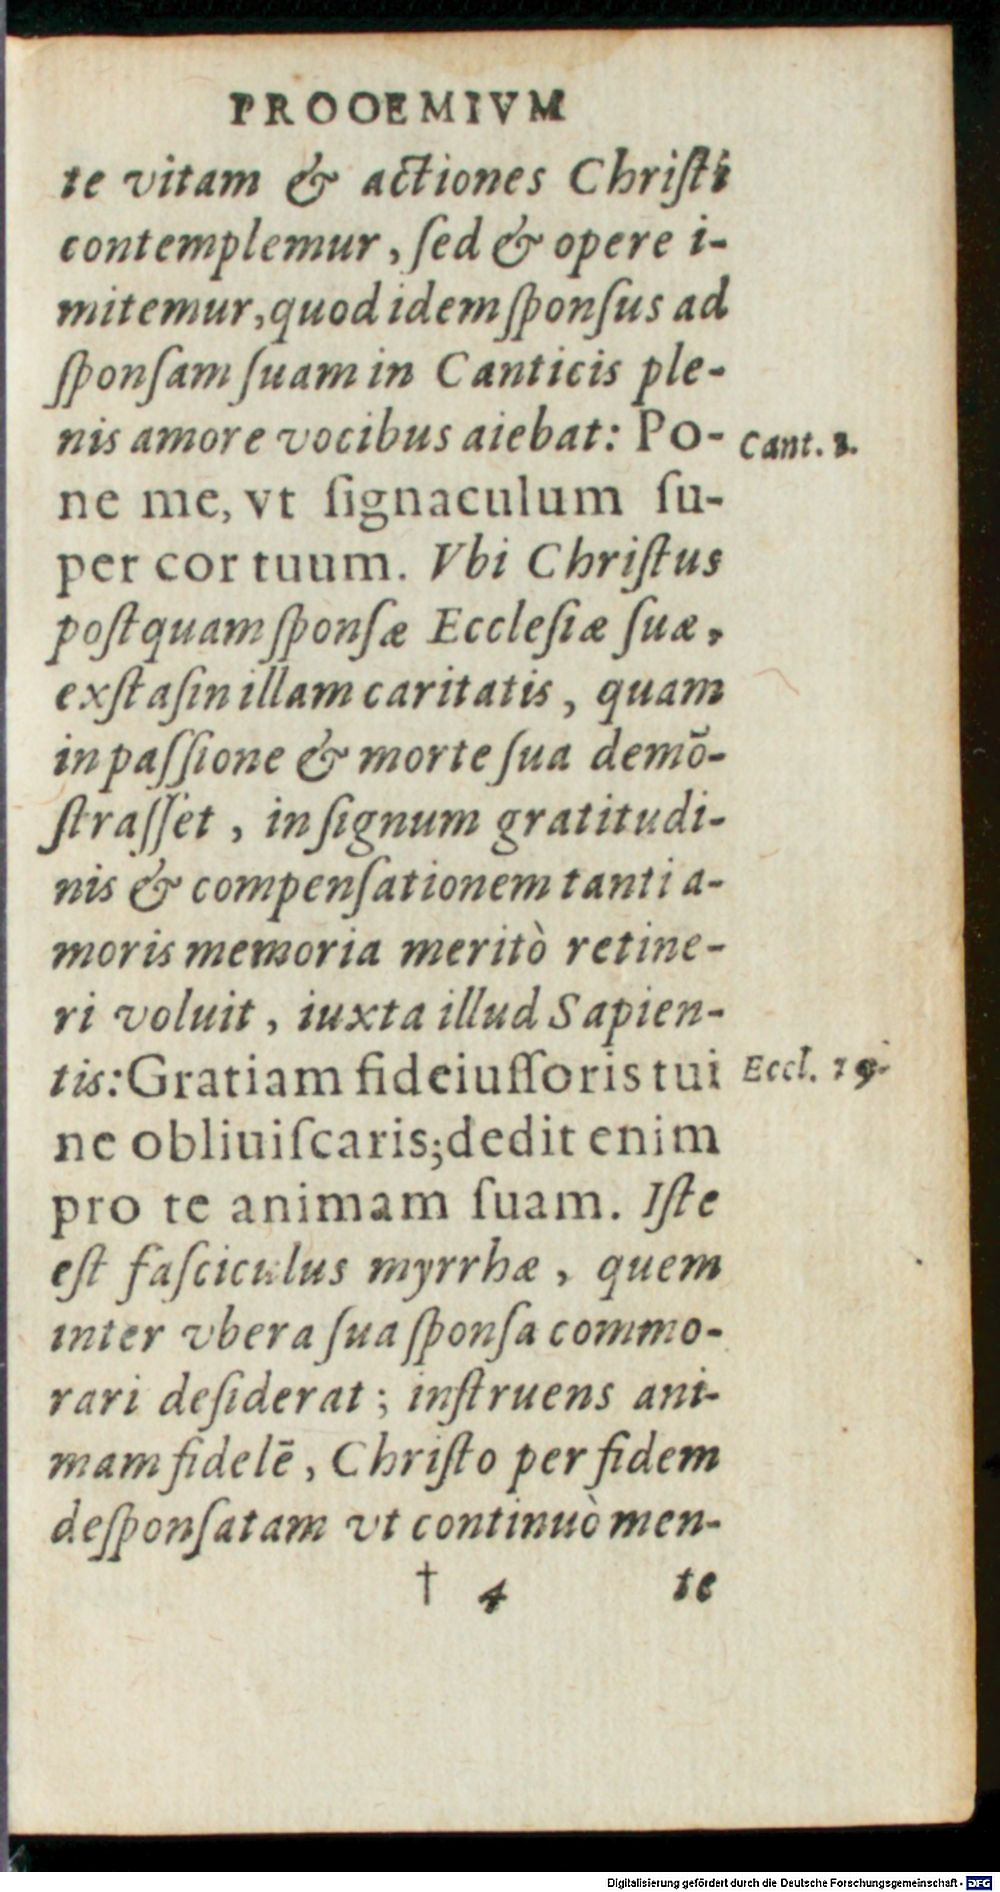 PROOEMIVM
te vitam & actiones Chriſti
contemplemur, ſed & opere i-
mitemur, quod idem ſponſus ad
ſponſam ſuam in Canticis ple-
nis amore vocibus aiebat: Po-
Cant.
ne me, vt ſignaculum ſu-
per cor tuum. Vbi Chriſtus
poſtquam ſponſæ Eccleſiæ ſuæ,
exſtaſin illam caritatis, quam
in paſſione & morte ſua demõ-
ſtraſſet, in ſignum gratitudi-
nis & compenſationem tanti a-
moris memoria meritò retine-
ri voluit, iuxta illud Sapien-
tis: Gratiam fideiuſſoris tui
Eccl. 29.
ne obliuiſcaris; dedit enim
pro te animam ſuam. Iſte
eſt faſciculus myrrhæ, quem
inter vbera ſua ſponſa commo-
rari deſiderat; inſtruens ani-
mam fidelē, Chriſto per fidem
deſponſatam vt continuò men-
† 4 te
Digitalisierung gefördert durch die Deutsche Forschungsgemeinschaft - DFG